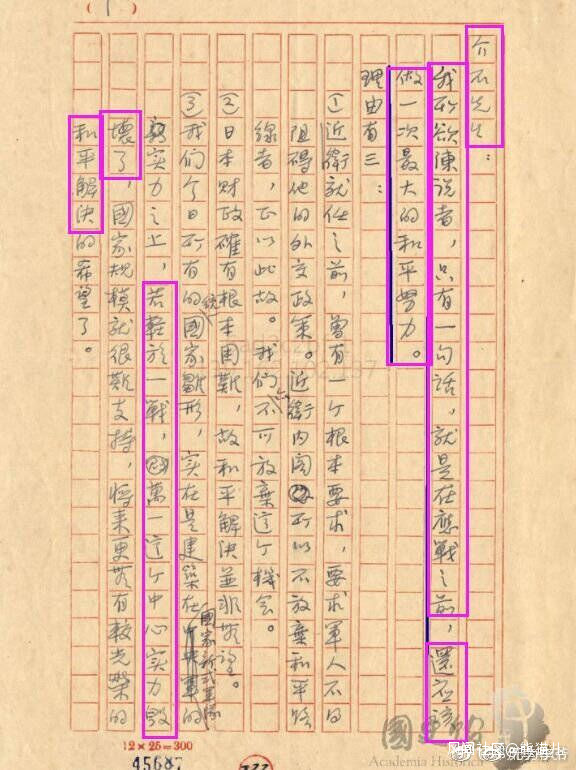 (1)
介石先生：
我所欲陳說者，只有一句話，就是在應戰之前，還應該
做一次最大的和平努力。
理由有三：
①近衛就任之前，曾有一个根本要求，要求軍人不可
阻碍他的外交政策。近衛內閣所以不放棄和平路
線者，正以此故。我們不可放棄這个機會。
②日本財政確有根本困難，故和平解決並非無望。
③我們今日所有的統一國家雛形，實在是建築在國家新式軍隊的
新實力之上，若輕於一戰，萬一這个中心實力毀
壞了，國家規模就很難支持，將來更無有較光榮的
和平解決的希望了。
12×25=300
45687
國史館
Academia Historica